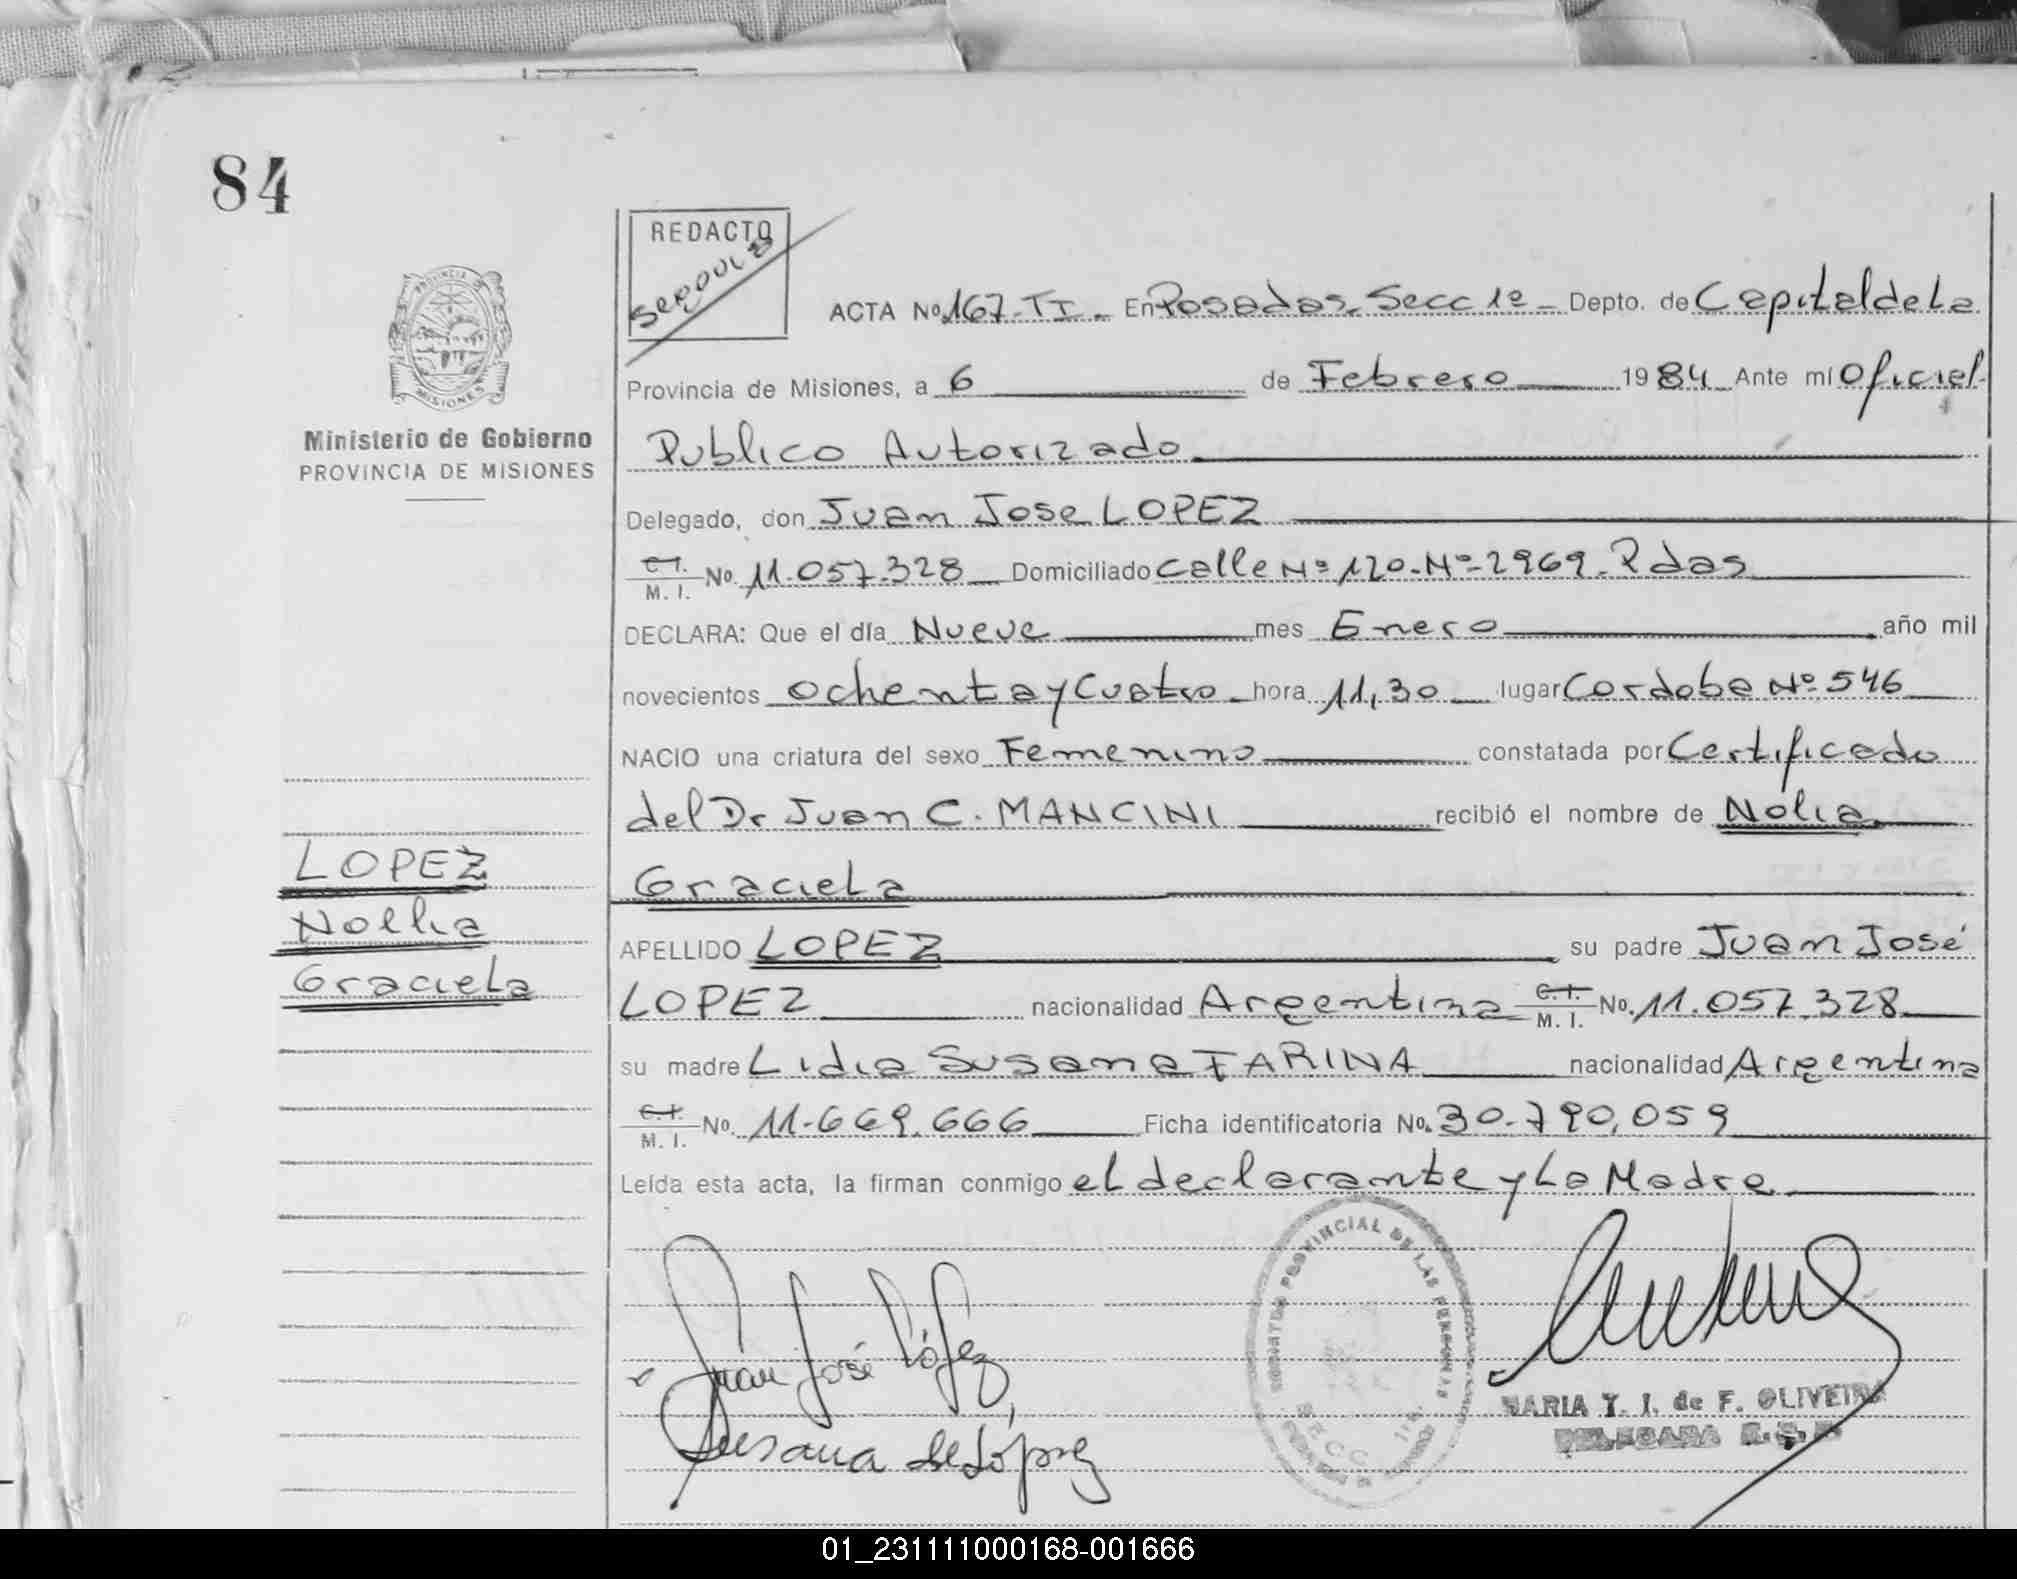 84
REDACTO
ACTA No. 167-TI. En Posadas, Secc 1º Depto. de Capital de La
Provincia de Misiones, a 6 de Febrero 1984 Ante mí Oficial
Ministerio de Gobierno
PROVINCIA DE MISIONES
Publico Autorizado
Delegado, don Juan Jose LOPEZ
C.I. M. I. No. 11.057.328 Domiciliado Calle Nº 120-Nº-2969-Pdas
DECLARA: Que el día Nueve mes Enero año mil
novecientos Ochenta y Cuatro hora 11,30 lugar Cordoba Nº 546
NACIO una criatura del sexo Femenino constatada por Certificado
del Dr Juan C. MANCINI recibió el nombre de Nolia
Graciela
LOPEZ
Noelia
Graciela
APELLIDO LOPEZ su padre Juan José
LOPEZ nacionalidad Argentina C.I. M. I. No. 11.057.328
su madre Lidia Susana FARINA nacionalidad Argentina
C.I. M. I. No. 11.669.666 Ficha identificatoria No. 30.790,059
Leída esta acta, la firman conmigo el declarante y La Madre
Juan José López
Susana de López
PROVINCIAL DE LAS PERSONAS
SECC. 1ra.
MARIA T. I. de F. OLIVEIRA
DELEGADA
01_231111000168-001666